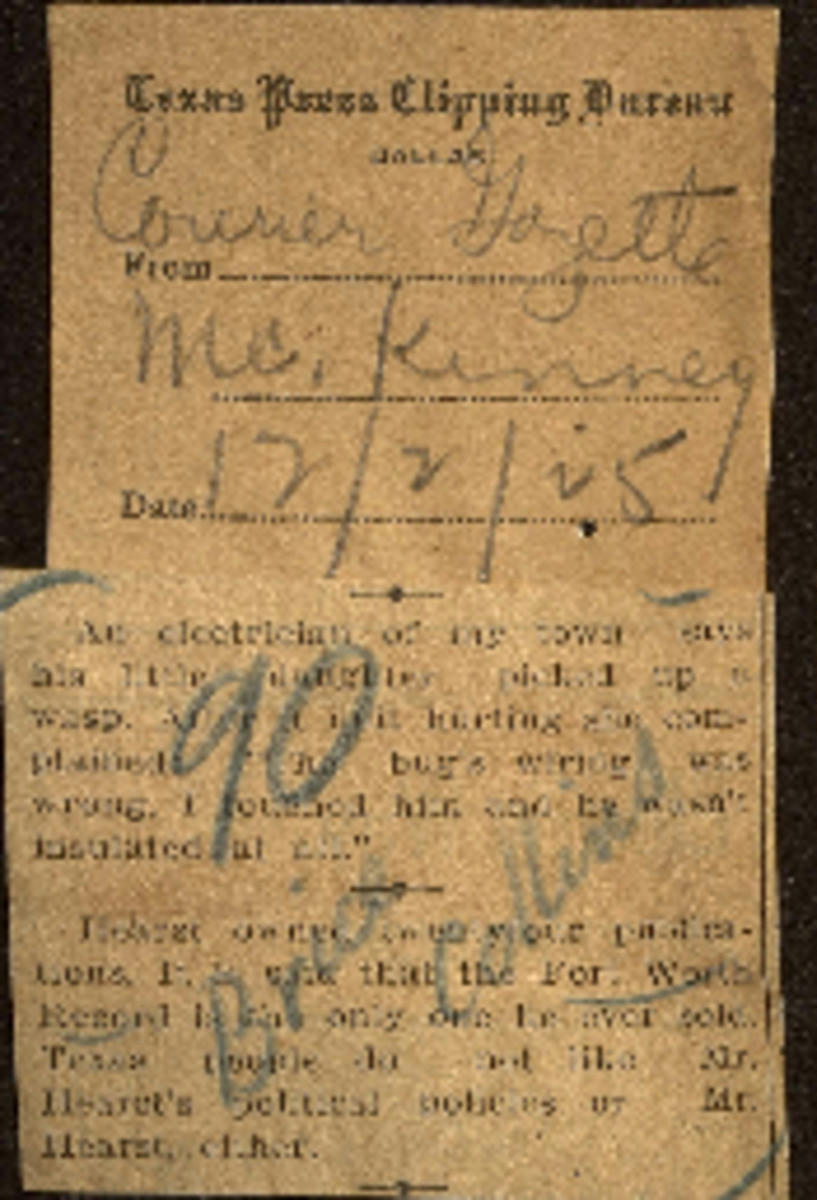 Texas Press Clipping Bureau
DALLAS
Courier Gazette
From
Mc. Kinney
12/2/25
Date
An electrician of my town says
his little daughter picked up a
wasp. After it quit hurting she com-
plained: "The bug's wiring was
wrong. I touched him and he wasn't
insulated at all."
90
Brice Collins
Hearst owned twenty-four publica-
tions. It is said that the Fort Worth
Record is the only one he ever sold.
Texas people do not like Mr.
Hearst's political policies or Mr.
Hearst, either.